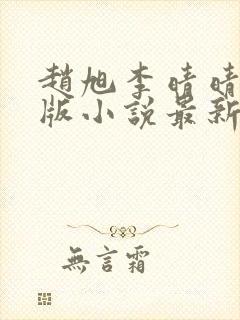 趙旭李晴晴
版小說最新
無言霜